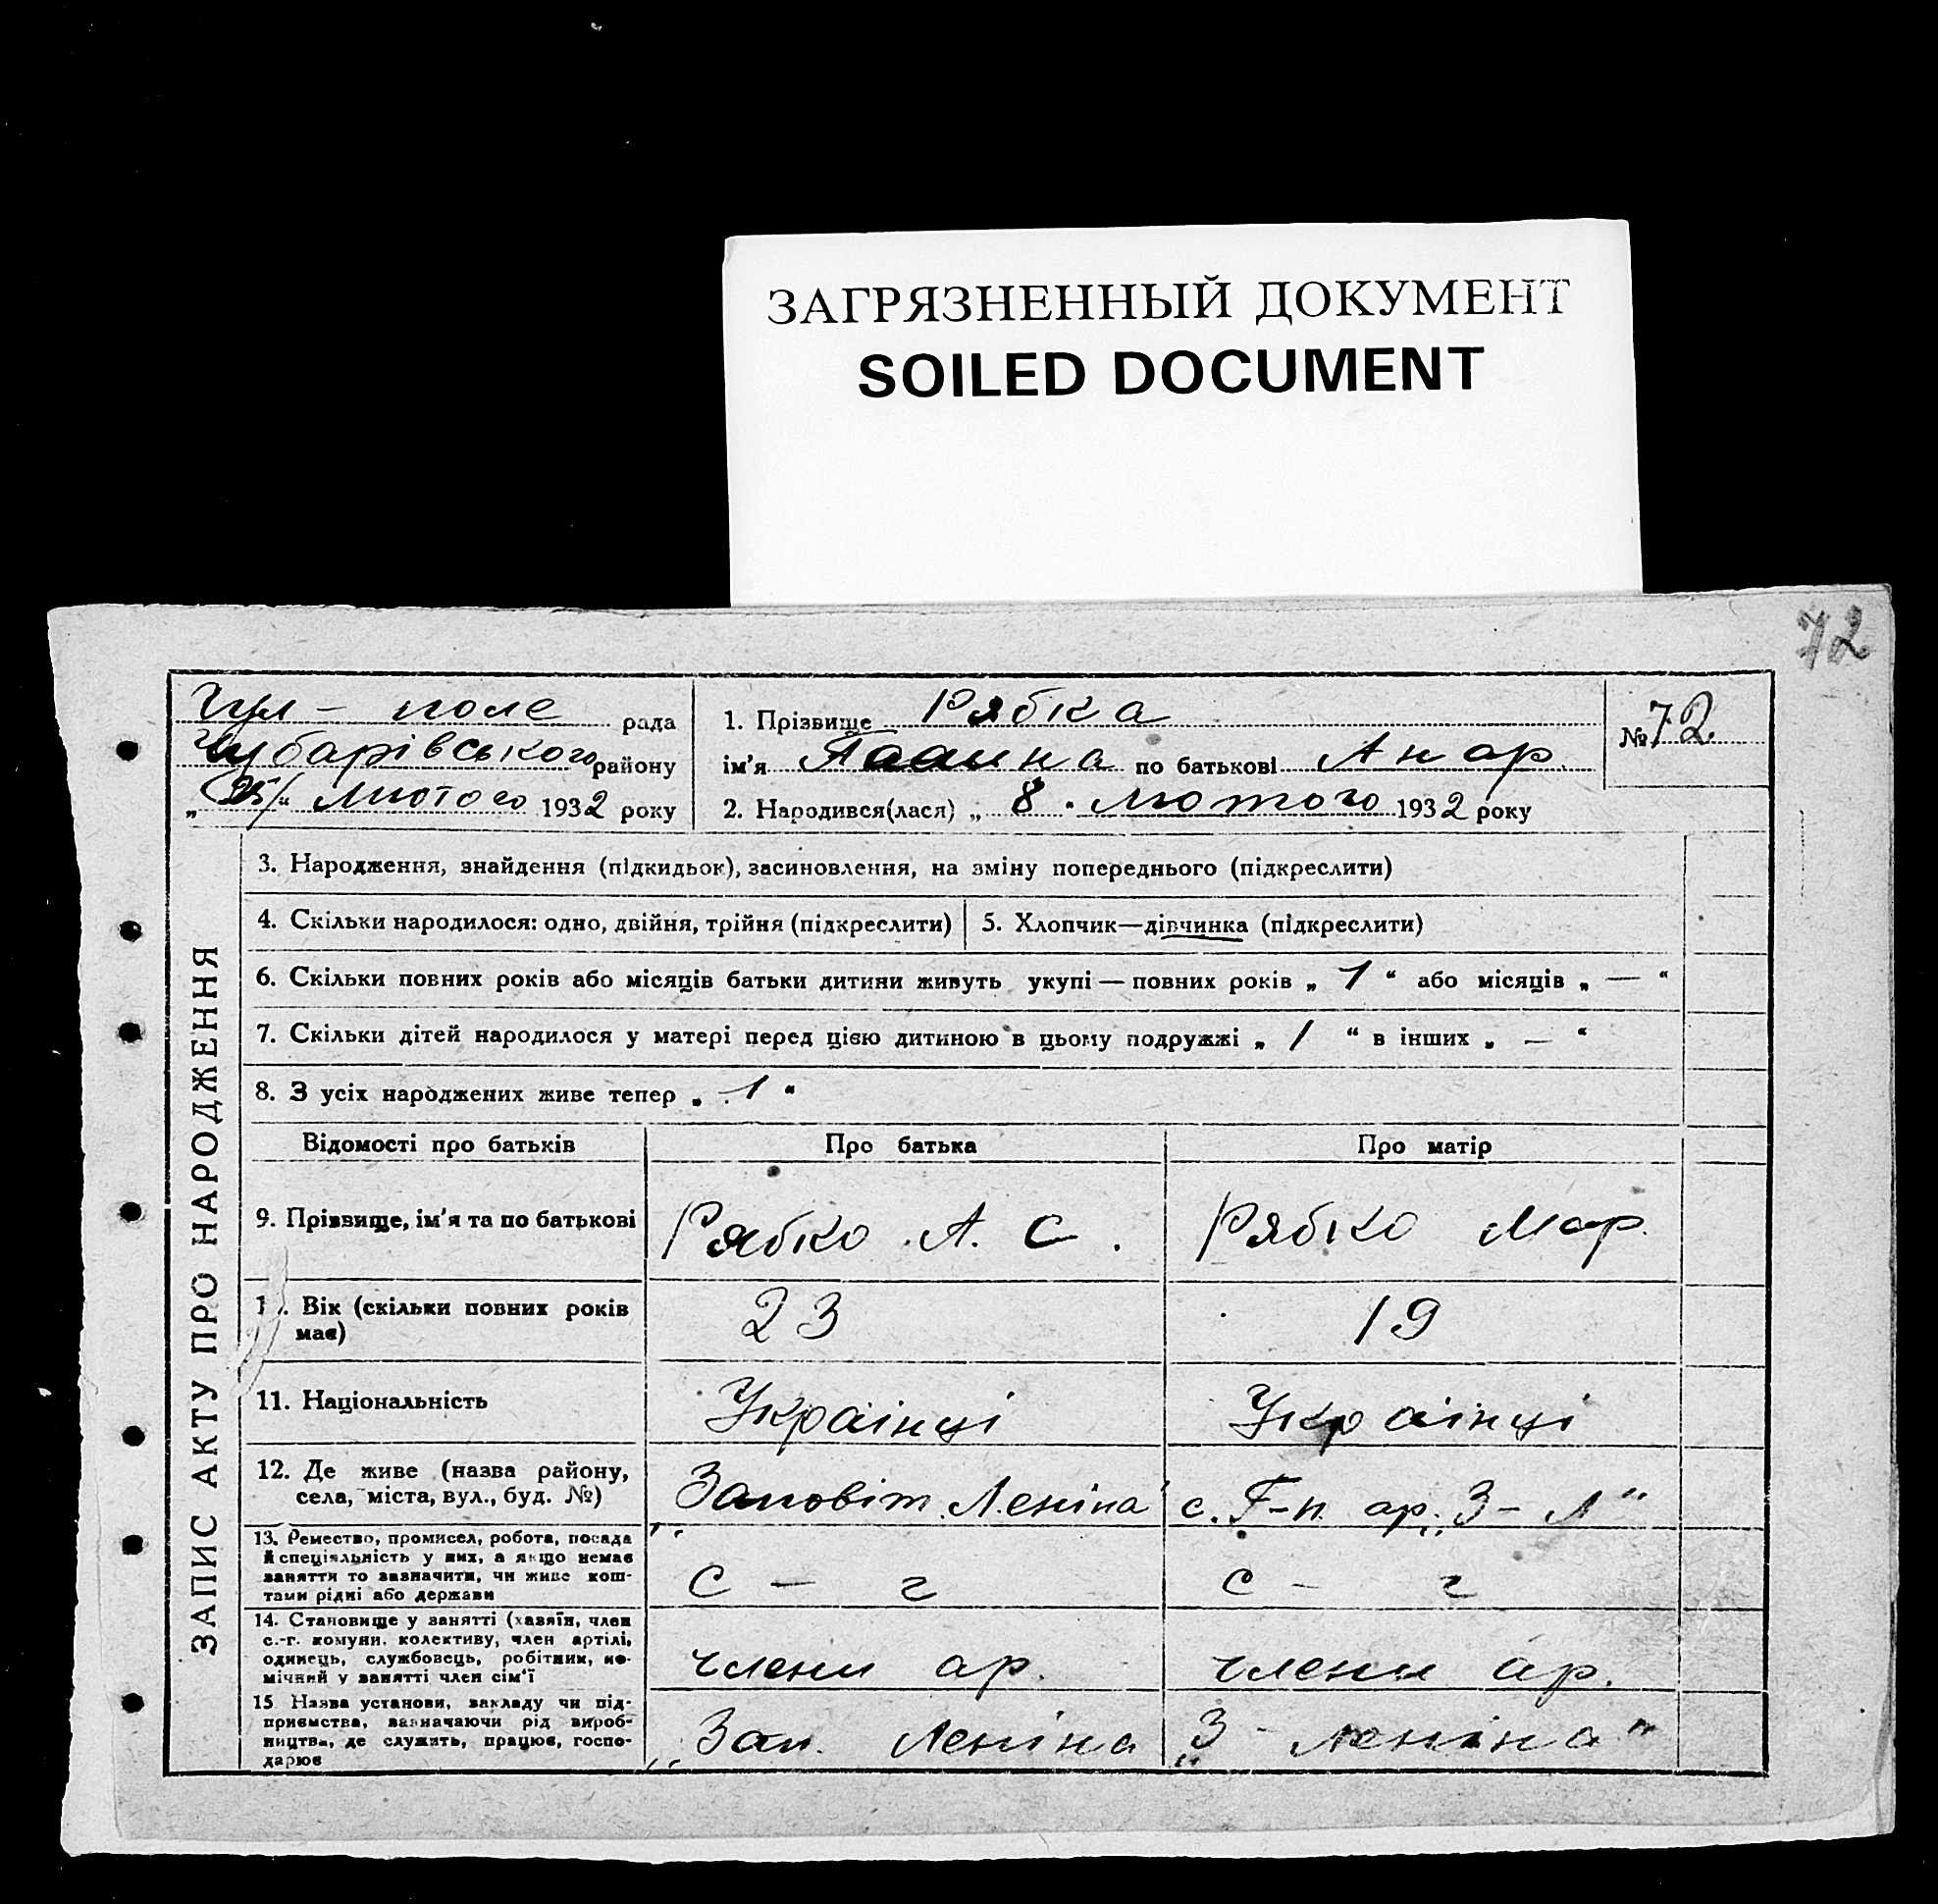 ЗАГРЯЗНЕННЫЙ ДОКУМЕНТ
SOILED DOCUMENT
72
Гул - поле рада
Чубарівського району
„25“ Лютого 1932 року
1. Прізвище Рябка
ім'я по батькові Анар.
2. Народився(лася) „ 8 . лютого 1932 року
№ 72.
ЗАПИС АКТУ ПРО НАРОДЖЕННЯ
3. Народження, знайдення (підкидьок), засиновлення, на зміну попереднього (підкреслити)
4. Скільки народилося: одно, двійня, трійня (підкреслити)
5. Хлопчик—дівчинка (підкреслити)
6. Скільки повних років або місяців батьки дитини живуть укупі — повних років „ 1 “ або місяців „ — “
7. Скільки дітей народилося у матері перед цією дитиною в цьому подружжі „ 1 “ в інших „ — “
8. З усіх народжених живе тепер „ 1 “
Відомості про батьків
Про батька
Про матір
9. Прізвище, ім'я та по батькові
Рябко А. С.
Рябко Мар.
Вік (скільки повних років
має)
23
19
11. Національність
Українці
Українці
12. Де живе (назва району,
села, міста, вул., буд. №)
„Заповіт Леніна
с. Г-п. ар. „З - Л“
13. Ремество, промисел, робота, посада
й спеціяльність у них, а якщо немає
заняття то зазначити, чи живе кош-
тами рідні або держави
с - г
с - г
14. Становище у занятті (хазяїн, член
с.-г. комуни, колективу, член артілі,
одинець, службовець, робітник, по-
мічний у занятті член сім'ї
члени ар.
члени ар.
15. Назва установи, закладу чи під-
приємства, зазначаючи рід вироб-
ництва, де служить, працює, госпо-
дарює
„Зап. Леніна
„З - Леніна“